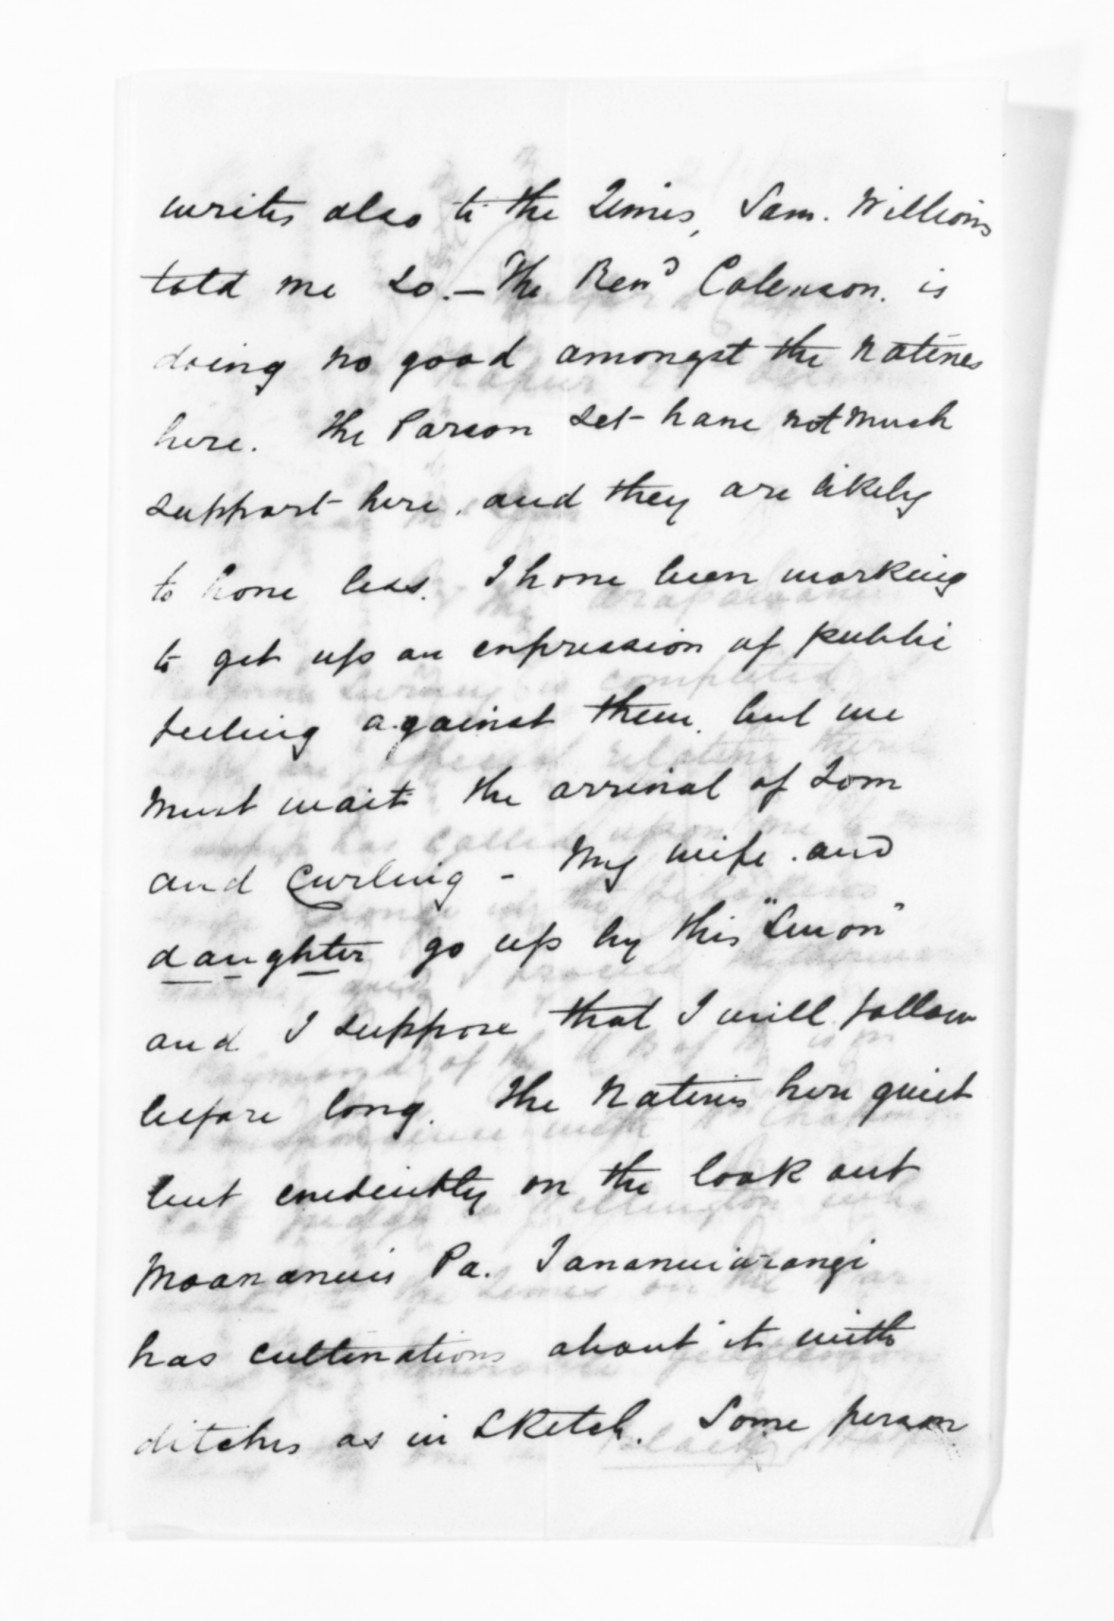 writes also to the Times, Sam. Williams
told me so. — The Revd Colenson. is
doing no good amongst the natives
here. The Parson set have not much
support here. and they are likely
to have less. I have been working
to get up an expression of public
feeling against them. but we
must wait the arrival of Tom
and Curling - My wife. and
daughter go up by this "Simon"
and I suppose that I will follow
before long. The Natives here quiet
but evidently on the look out
Moananuis Pa. Tananuiarangi
has cultivations about it with
ditches as in sketch. Some person